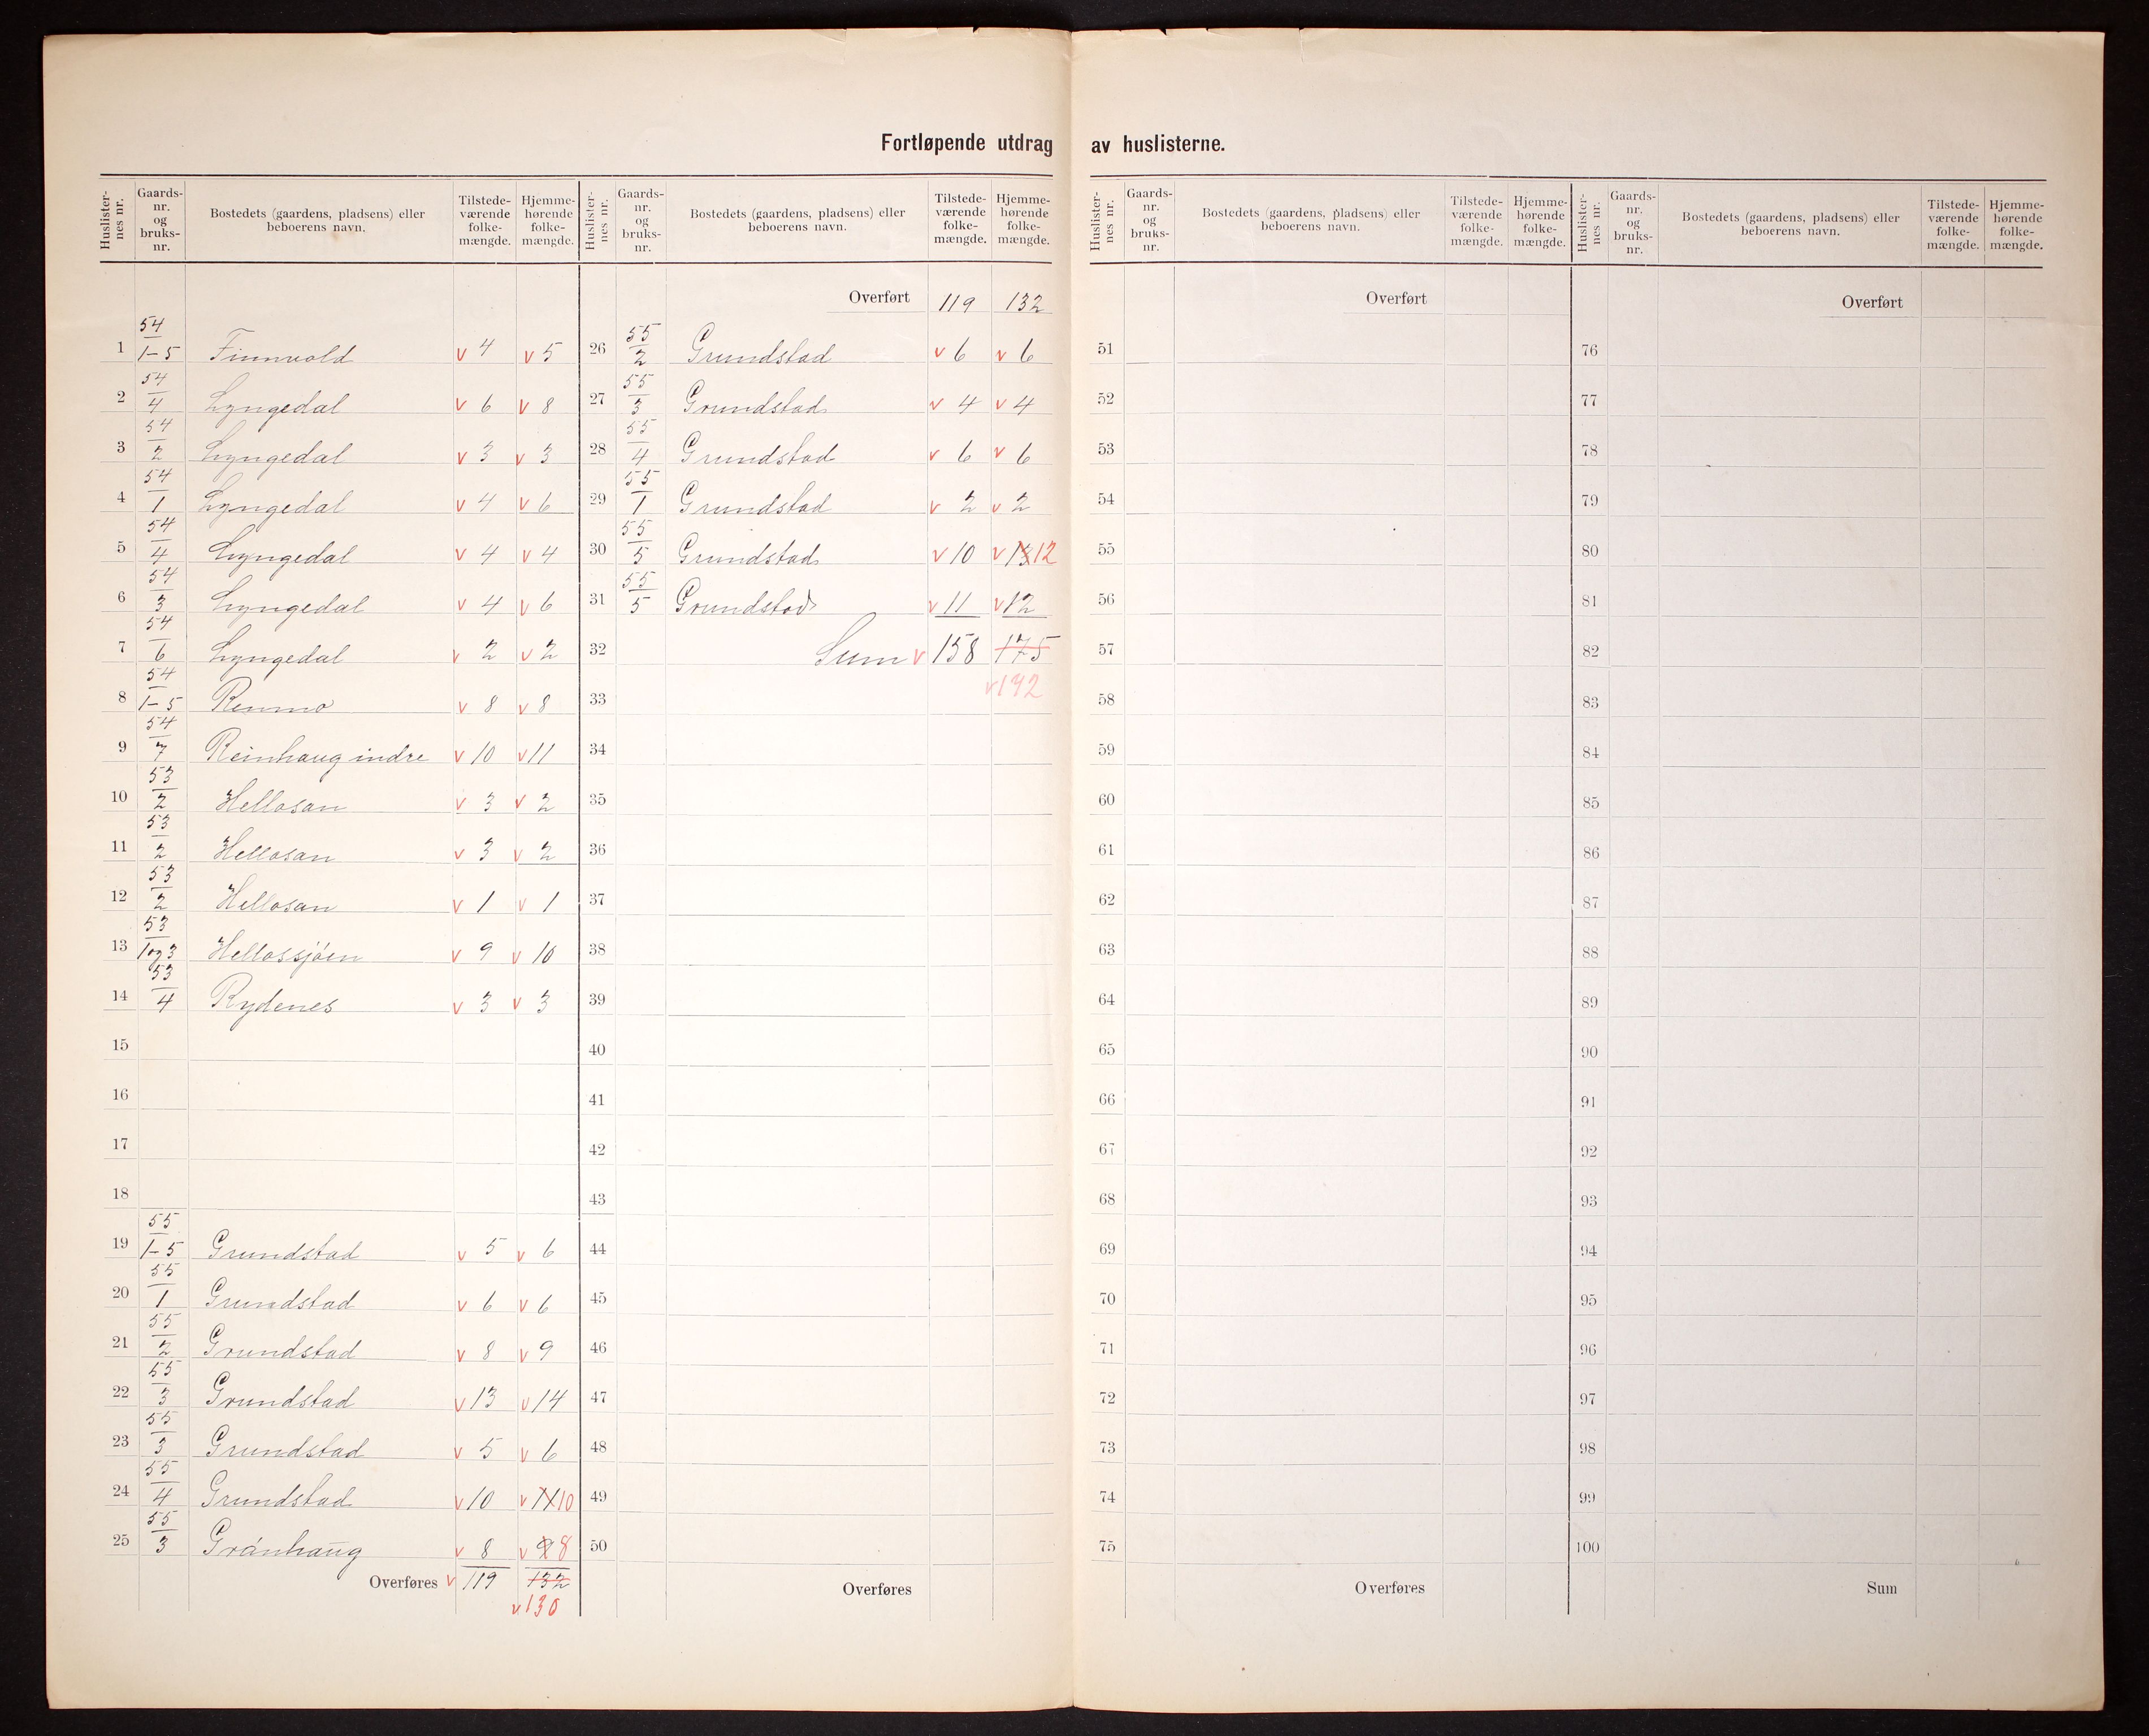 Fortløpende utdrag av huslisterne.
Huslister-nes nr. Gaards-nr. og bruks-nr. Bostedets (gaardens, pladsens) eller beboerens navn. Tilstede-værende folke-mængde. Hjemme-hørende folke-mængde.
1 54/1-5 Finnvold v 4 v 5
2 54/4 Lyngedal v 6 v 8
3 54/2 Lyngedal v 3 v 3
4 54/1 Lyngedal v 4 v 6
5 54/4 Lyngedal v 4 v 4
6 54/3 Lyngedal v 4 v 6
7 54/6 Lyngedal v 2 v 2
8 54/1-5 Renmo v 8 v 8
9 54/7 Reinhaug indre v 10 v 11
10 53/2 Hellosan v 3 v 2
11 53/2 Hellosan v 3 v 2
12 53/2 Hellosan v 1 v 1
13 53/1 og 3 Hellossjöen v 9 v 10
14 53/4 Rydenes v 3 v 3
15
16
17
18
19 55/1-5 Grundstad v 5 v 6
20 55/1 Grundstad v 6 v 6
21 55/2 Grundstad v 8 v 9
22 55/3 Grundstad v 13 v 14
23 55/3 Grundstad v 5 v 6
24 55/4 Grundstad v 10 v 11 10
25 55/3 Gránhaug v 8 v 9 8
Overføres v 119 132
v 130
Huslister-nes nr. Gaards-nr. og bruks-nr. Bostedets (gaardens, pladsens) eller beboerens navn. Tilstede-værende folke-mængde. Hjemme-hørende folke-mængde.
Overført 119 132
26 55/2 Grundstad v 6 v 6
27 55/3 Grundstad v 4 v 4
28 55/4 Grundstad v 6 v 6
29 55/1 Grundstad v 2 v 2
30 55/5 Grundstad v 10 v 13 12
31 55/5 Grundstad v 11 v 12
32 Sum v 158 175
v 172
33
34
35
36
37
38
39
40
41
42
43
44
45
46
47
48
49
50
Overføres
Huslister-nes nr. Gaards-nr. og bruks-nr. Bostedets (gaardens, pladsens) eller beboerens navn. Tilstede-værende folke-mængde. Hjemme-hørende folke-mængde.
Overført
51
52
53
54
55
56
57
58
59
60
61
62
63
64
65
66
67
68
69
70
71
72
73
74
75
Overføres
Huslister-nes nr. Gaards-nr. og bruks-nr. Bostedets (gaardens, pladsens) eller beboerens navn. Tilstede-værende folke-mængde. Hjemme-hørende folke-mængde.
Overført
76
77
78
79
80
81
82
83
84
85
86
87
88
89
90
91
92
93
94
95
96
97
98
99
100
Sum